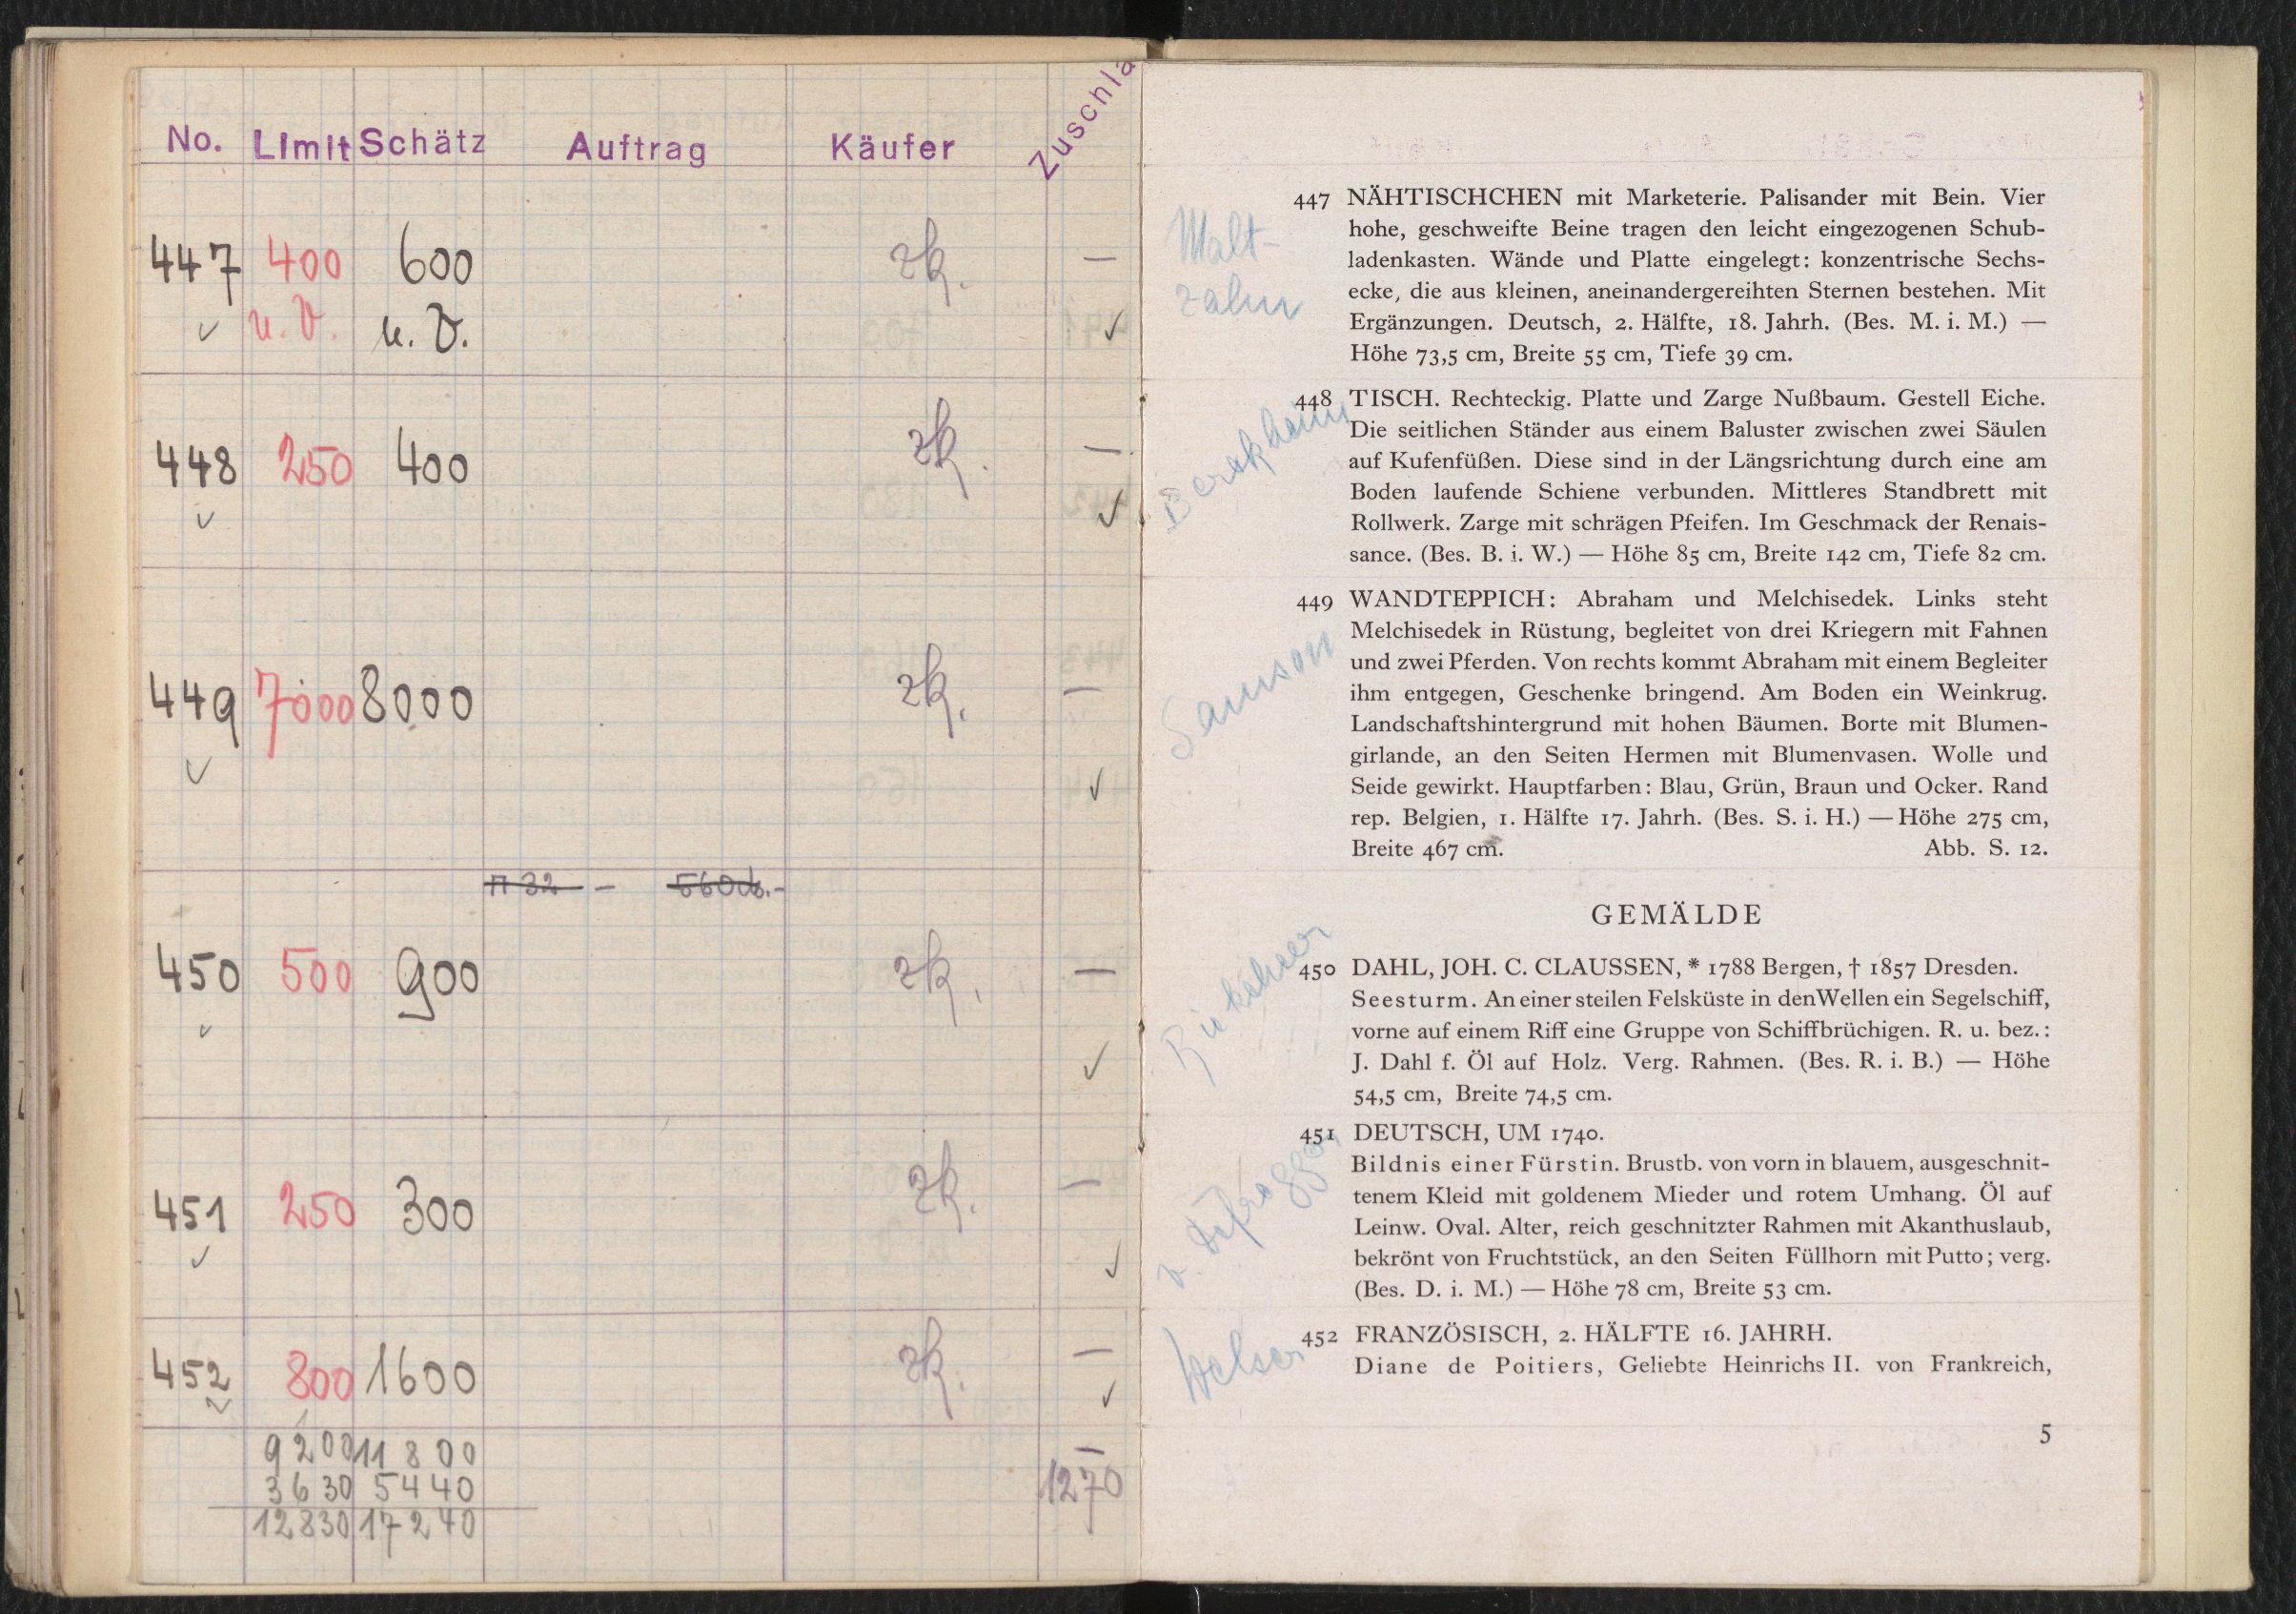 No. Limit Schätz Auftrag Käufer Zuschla
447 400 600 zk. —
✓ u. V. u. V. ✓
448 250 400 zk. —
✓ ✓
449 7000 8000 zk. —
✓ ✓
450 500 900 zk. —
✓ ✓
451 250 300 zk. —
✓ ✓
452 800 1600 zk. —
✓ ✓
9200 11 800 —
3630 5440 1270
12830 17240
Malt-
zahn
447 NÄHTISCHCHEN mit Marketerie. Palisander mit Bein. Vier
hohe, geschweifte Beine tragen den leicht eingezogenen Schub-
ladenkasten. Wände und Platte eingelegt: konzentrische Sechs-
ecke, die aus kleinen, aneinandergereihten Sternen bestehen. Mit
Ergänzungen. Deutsch, 2. Hälfte, 18. Jahrh. (Bes. M. i. M.) —
Höhe 73,5 cm, Breite 55 cm, Tiefe 39 cm.
448 TISCH. Rechteckig. Platte und Zarge Nußbaum. Gestell Eiche.
Die seitlichen Ständer aus einem Baluster zwischen zwei Säulen
auf Kufenfüßen. Diese sind in der Längsrichtung durch eine am
Boden laufende Schiene verbunden. Mittleres Standbrett mit
Rollwerk. Zarge mit schrägen Pfeifen. Im Geschmack der Renais-
sance. (Bes. B. i. W.) — Höhe 85 cm, Breite 142 cm, Tiefe 82 cm.
Samson
449 WANDTEPPICH: Abraham und Melchisedek. Links steht
Melchisedek in Rüstung, begleitet von drei Kriegern mit Fahnen
und zwei Pferden. Von rechts kommt Abraham mit einem Begleiter
ihm entgegen, Geschenke bringend. Am Boden ein Weinkrug.
Landschaftshintergrund mit hohen Bäumen. Borte mit Blumen-
girlande, an den Seiten Hermen mit Blumenvasen. Wolle und
Seide gewirkt. Hauptfarben: Blau, Grün, Braun und Ocker. Rand
rep. Belgien, 1. Hälfte 17. Jahrh. (Bes. S. i. H.) — Höhe 275 cm,
Breite 467 cm. Abb. S. 12.
GEMÄLDE
450 DAHL, JOH. C. CLAUSSEN, * 1788 Bergen, † 1857 Dresden.
Seesturm. An einer steilen Felsküste in den Wellen ein Segelschiff,
vorne auf einem Riff eine Gruppe von Schiffbrüchigen. R. u. bez.:
J. Dahl f. Öl auf Holz. Verg. Rahmen. (Bes. R. i. B.) — Höhe
54,5 cm, Breite 74,5 cm.
451 DEUTSCH, UM 1740.
Bildnis einer Fürstin. Brustb. von vorn in blauem, ausgeschnit-
tenem Kleid mit goldenem Mieder und rotem Umhang. Öl auf
Leinw. Oval. Alter, reich geschnitzter Rahmen mit Akanthuslaub,
bekrönt von Fruchtstück, an den Seiten Füllhorn mit Putto; verg.
(Bes. D. i. M.) — Höhe 78 cm, Breite 53 cm.
Welser
452 FRANZÖSISCH, 2. HÄLFTE 16. JAHRH.
Diane de Poitiers, Geliebte Heinrichs II. von Frankreich,
5